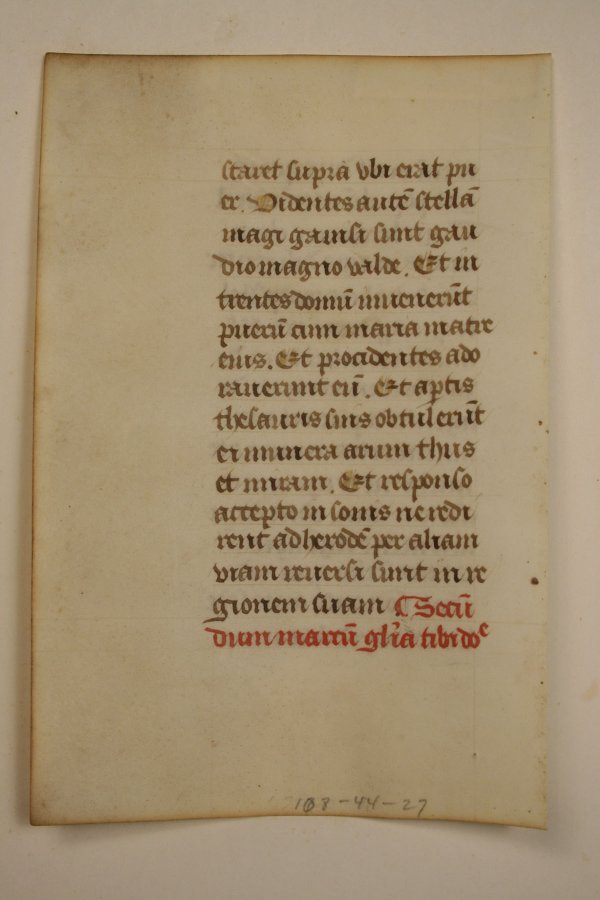 staret supra vbi erat pu
er. Videntes autē stellā
magi gauisi sunt gau
dio magno valde. Et in
trentes domū inuenerūt
puerū cum maria matre
eius. Et procidentes ado
rauerunt eū. Et aptis
thesauris suis obtulerūt
ei munera arum thus
et miram. Et responso
accepto in sonis ne redi
rent ad herodē per aliam
viam reuersi sunt in re
gionem suam ¶ Secū
dium marcū gl'ia tibi doᵉ
108-44-27